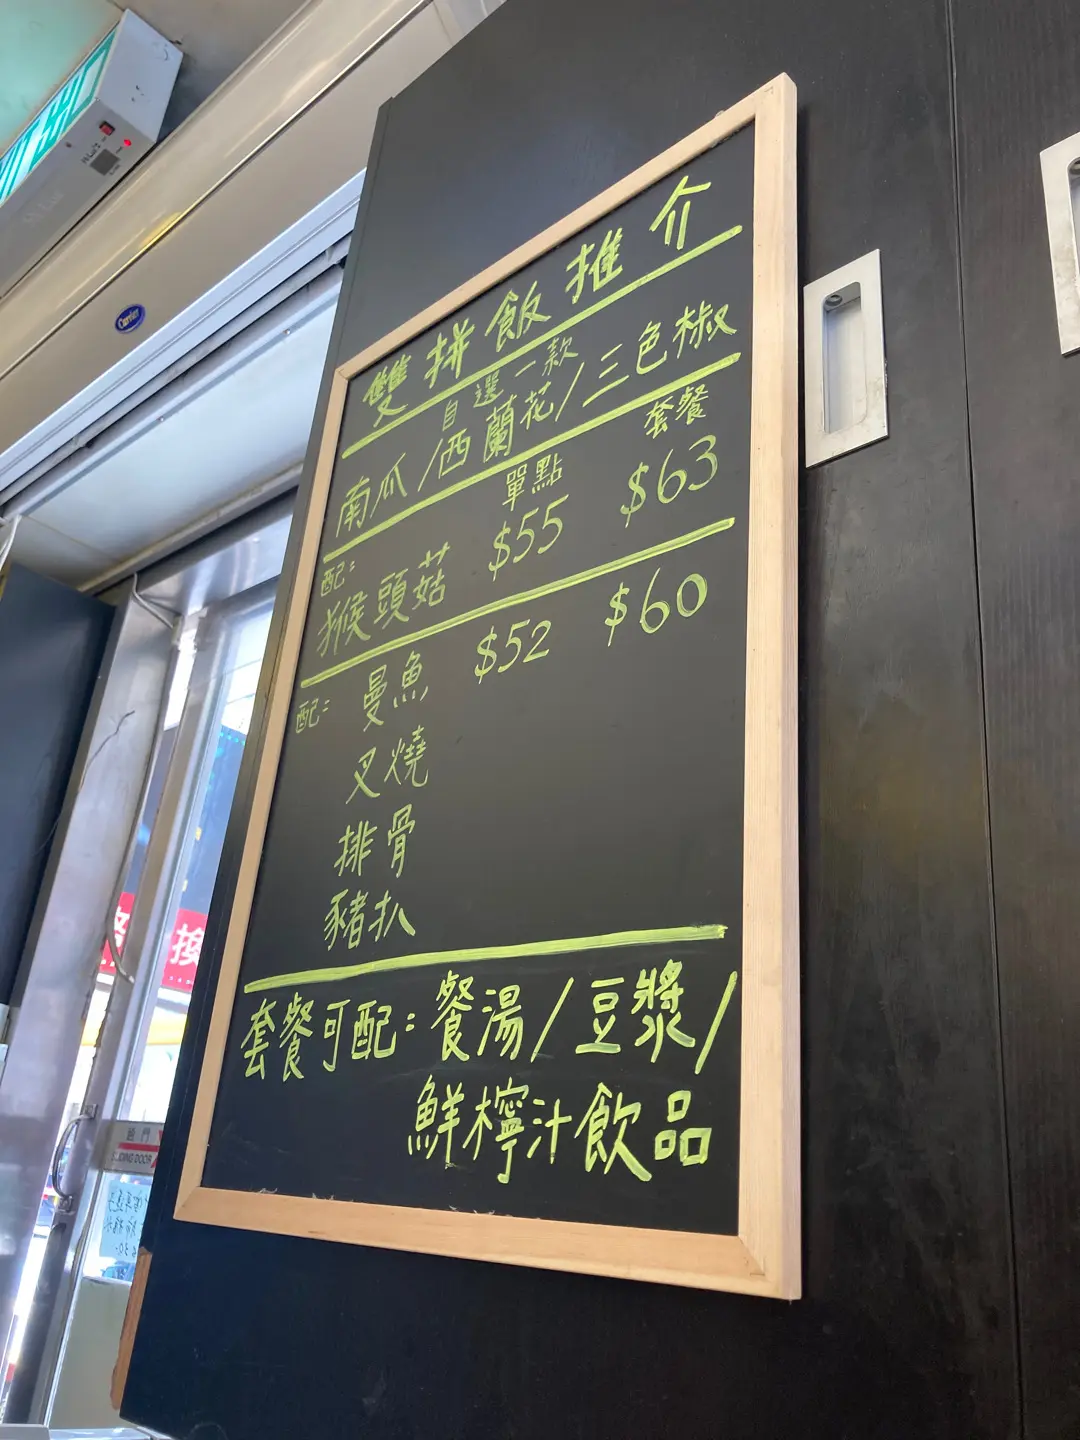 雙拼飯推介
自選一款
南瓜/西蘭花/三色椒
單點 套餐
配: 猴頭菇 $55 $63
配: 曼魚 $52 $60
叉燒
排骨
豬扒
套餐可配:餐湯/豆漿/
鮮檸汁飲品
Carrier
換
SLIDING DOOR